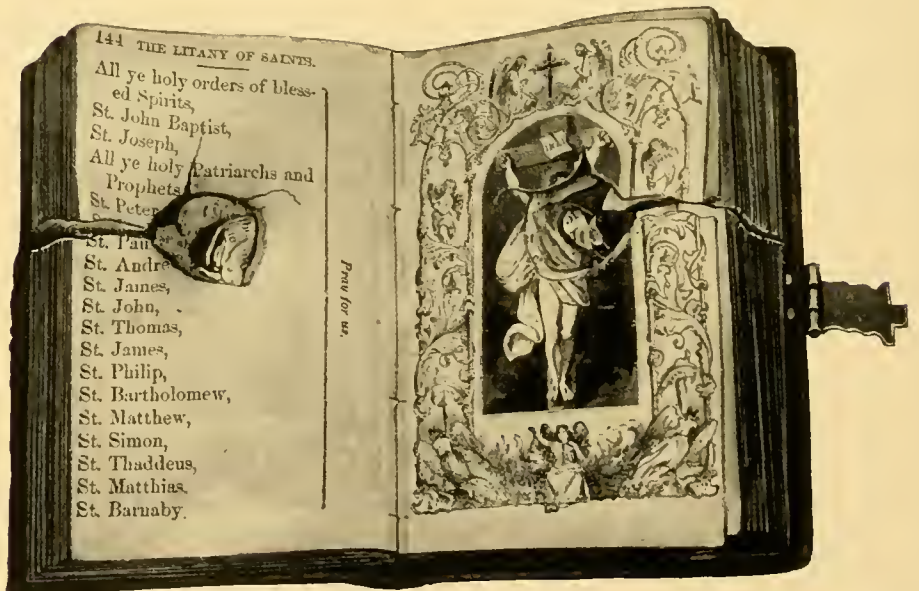 144 THE LITANY OF SAINTS.
All ye holy orders of bless-
ed Spirits,
St. John Baptist,
St. Joseph,
All ye holy Patriarchs and
Prophets
St. Peter
St. Pau
St. Andre
St. James,
St. John,
St. Thomas,
St. James,
St. Philip,
St. Bartholomew,
St. Matthew,
St. Simon,
St. Thaddeus,
St. Matthias.
St. Barnaby.
Pray for us.
INRI